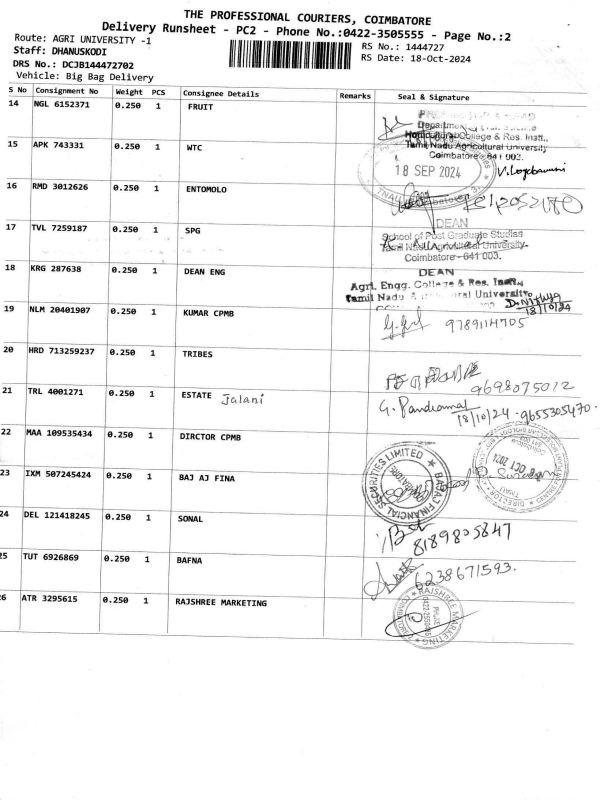 THE PROFESSIONAL COURIERS, COIMBATORE
Delivery Runsheet - PC2 - Phone No.:0422-3505555 - Page No.:2
Route: AGRI UNIVERSITY -1
RS No.: 1444727
Staff: DHANUSKODI
RS Date: 18-Oct-2024
DRS No.: DCJB144472702
Vehicle: Big Bag Delivery
S No Consignment No Weight PCS Consignee Details Remarks Seal & Signature
14 NGL 6152371 0.250 1 FRUIT
Horticultural College & Res. Instt.,
Tamil Nadu Agricultural University
Coimbatore - 641 003.
15 APK 743331 0.250 1 WTC
18 SEP 2024
16 RMD 3012626 0.250 1 ENTOMOLO
17 TVL 7259187 0.250 1 SPG
DEAN
School of Post Graduate Studies
Tamil Nadu Agricultural University
Coimbatore - 641 003.
18 KRG 287638 0.250 1 DEAN ENG
DEAN
Agri. Engg. College & Res. Instt.,
Tamil Nadu Agricultural University
18/10/24
19 NLM 20401907 0.250 1 KUMAR CPMB
9789114705
20 HRD 713259237 0.250 1 TRIBES
9698075012
21 TRL 4001271 0.250 1 ESTATE Jalani
G. Pandiammal
18/10/24 - 9655305470
22 MAA 109535434 0.250 1 DIRCTOR CPMB
OCT 2024
23 IXM 507245424 0.250 1 BAJ AJ FINA
BAJAJ FINANCIAL SECURITIES LIMITED
24 DEL 121418245 0.250 1 SONAL
8189805847
25 TUT 6926869 0.250 1 BAFNA
6238671593.
26 ATR 3295615 0.250 1 RAJSHREE MARKETING
RAJSHREE MARKETING